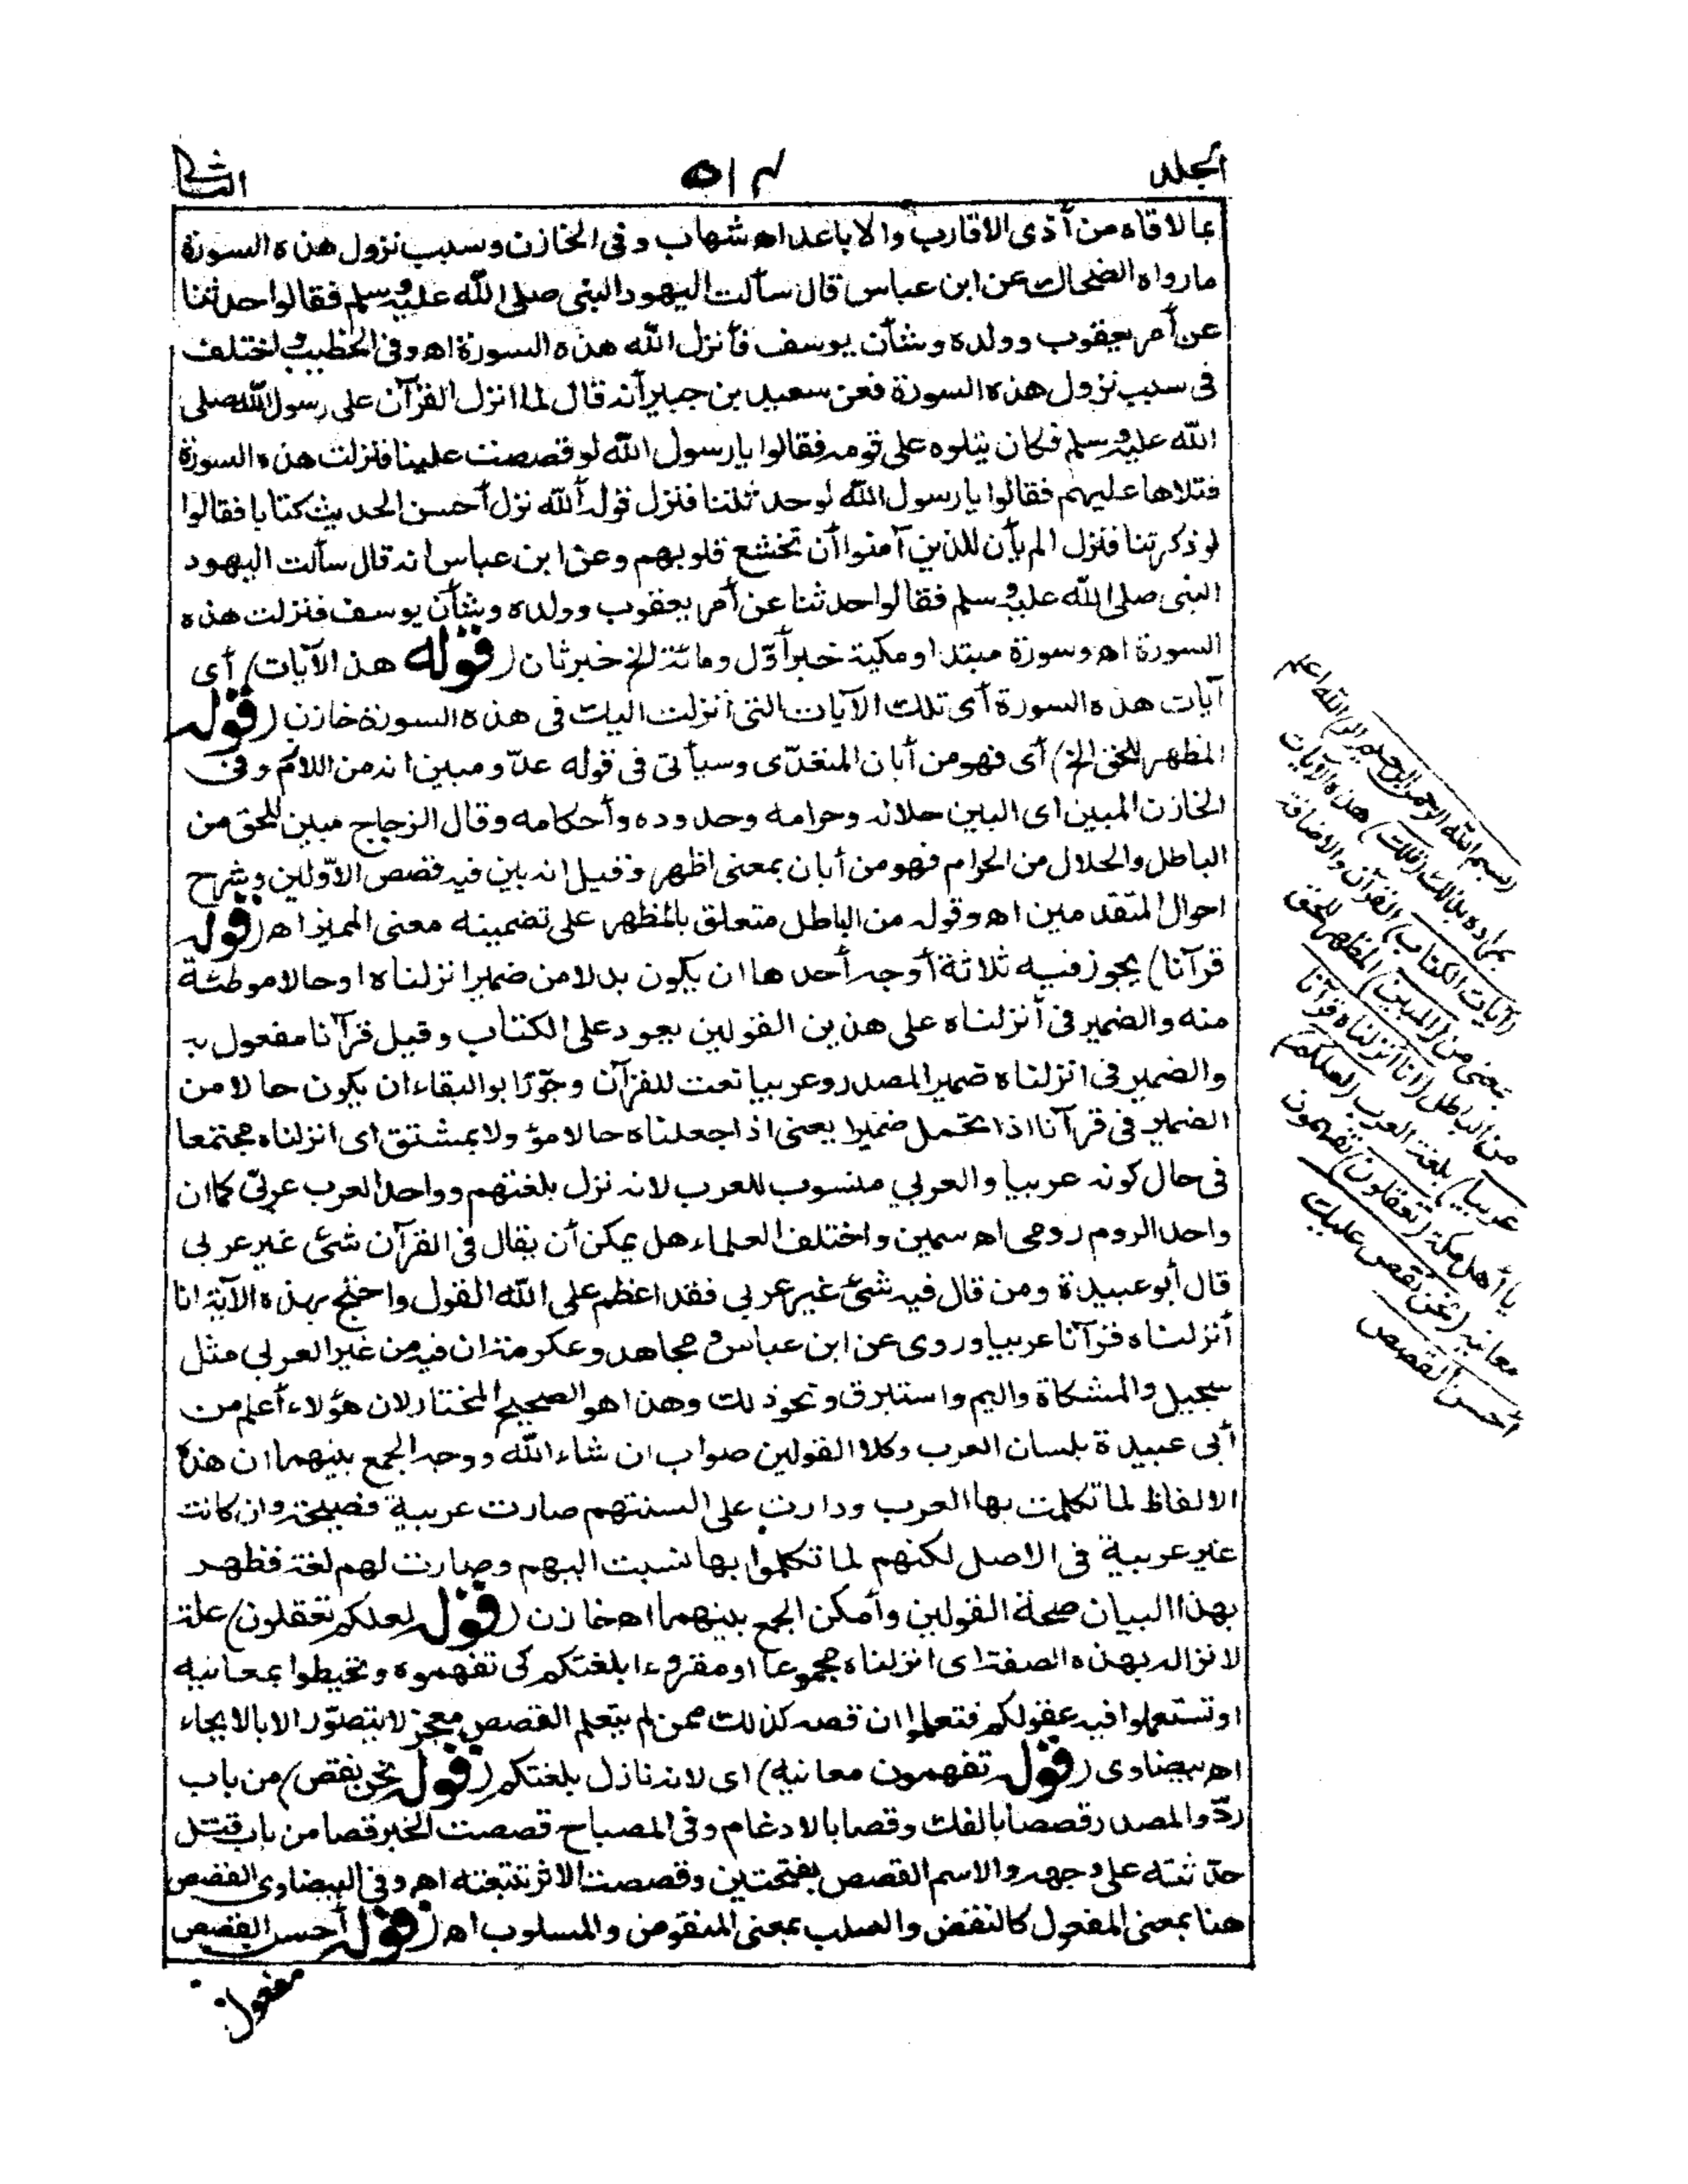 الجلد ٥١٣ الثانى
بما لاقاه من أذى الاقارب والاباعد اه شهاب وفى الخازن وسبب نزول هذه السورة
مارواه الضحاك عن ابن عباس قال سألت اليهود النبى صلى الله عليه وسلم فقالوا حدثنا
عن أمر يعقوب وولده وشأن يوسف فأنزل الله هذه السورة اه وفى الخطيب واختلف
فى سبب نزول هذه السورة فعن سعيد بن جبير أنه قال لما انزل القرآن على رسول الله صلى
الله عليه وسلم فكان يتلوه على قومه فقالوا يا رسول الله لو قصصت علينا فنزلت هذه السورة
فتلاها عليهم فقالوا يا رسول الله لو حدثتنا فنزل قوله ألله نزل أحسن الحديث كتابا فقالوا
لو ذكرتنا فنزل الم يأن للذين آمنوا أن تخشع قلوبهم وعن ابن عباس انه قال سألت اليهود
النبى صلى الله عليه وسلم فقالوا حدثنا عن أمر يعقوب وولده وشأن يوسف فنزلت هذه
السورة اه وسورة مبتدا ومكية خبر أوّل ومائة الخ خبر ثان (قوله هذه الآيات) أى
آيات هذه السورة أى تلك الآيات التى أنزلت اليك فى هذه السورة خازن (قوله
المظهر للحق الخ) أى فهو من أبان المتعدّى وسيأتى فى قوله عدوّ مبين انه من اللازم وفى
الخازن المبين اى البين حلاله وحرامه وحدوده وأحكامه وقال الزجاج مبين للحق من
الباطل والحلال من الحرام فهو من أبان بمعنى اظهر وقيل انه بين فيه قصص الاوّلين وشرح
احوال المتقدمين اه وقوله من الباطل متعلق بالمظهر على تضمينه معنى المميز اه (قوله
قرآنا) يجوز فيه ثلاثة أوجه أحدها ان يكون بدلا من ضمير انزلناه او حالا موطئة
منه والضمير فى أنزلناه على هذين القولين يعود على الكتاب وقيل قرآنا مفعول به
والضمير فى انزلناه ضمير المصدر وعربيا نعت للقرآن وجوّز ابو البقاء ان يكون حالا من
الضمير فى قرآنا اذا تحمل ضميرا يعنى اذا جعلناه حالا مؤولا بمشتق اى انزلناه مجتمعا
فى حال كونه عربيا والعربي منسوب للعرب لانه نزل بلغتهم وواحد العرب عربىّ كما ان
واحد الروم رومى اه سمين واختلف العلماء هل يمكن أن يقال فى القرآن شئ غير عربى
قال أبو عبيدة ومن قال فيه شئ غير عربي فقد اعظم على الله القول واحتج بهذه الآية انا
أنزلناه قرآنا عربيا وروى عن ابن عباس ومجاهد وعكرمة ان فيه من غير العربى مثل
سجيل والمشكاة واليم واستبرق ونحو ذلك وهذا هو الصحيح المختار لان هؤلاء أعلم من
أبى عبيدة بلسان العرب وكلا القولين صواب ان شاء الله ووجه الجمع بينهما ان هذه
الالفاظ لما تكلمت بها العرب ودارت على السنتهم صارت عربية فصيحة وان كانت
غير عربية فى الاصل لكنهم لما تكلموا بها نسبت اليهم وصارت لهم لغة فظهر
بهذا البيان صحة القولين وأمكن الجمع بينهما اه خازن (قوله لعلكم تعقلون) علة
لانزاله بهذه الصفة اى انزلناه مجموعا او مقروءا بلغتكم كى تفهموه وتحيطوا بمعانيه
او تستعملوا فيه عقولكم فتعلموا ان قصه كذلك ممن لم يتعلم القصص معجز لا يتصوّر الا بالايحاء
اه بيضاوى (قوله تفهمون معانيه) اى لانه نازل بلغتكم (قوله نحن نقص) من باب
ردّ والمصدر قصصا بالفك وقصا بالادغام وفى المصباح قصصت الخبر قصا من باب قتل
حدّثته على وجهه والاسم القصص بفتحتين وقصصت الاثر تتبعته اه وفى البيضاوى القصص
هنا بمعنى المفعول كالنقض والسلب بمعنى المنقوض والمسلوب اه (قوله أحسن القصص
مفعول
(بسم الله الرحمن الرحيم الر) الله اعلم
بمراده بذلك (تلك) هذه الآيات
(آيات الكتاب) القرآن والاضافة
بمعنى من (المبين) المظهر للحق
من الباطل (انا انزلناه قرآنا
عربيا) بلغة العرب (لعلكم)
يا أهل مكة (تعقلون) تفهمون
معانيه (نحن نقص عليك
أحسن القصص